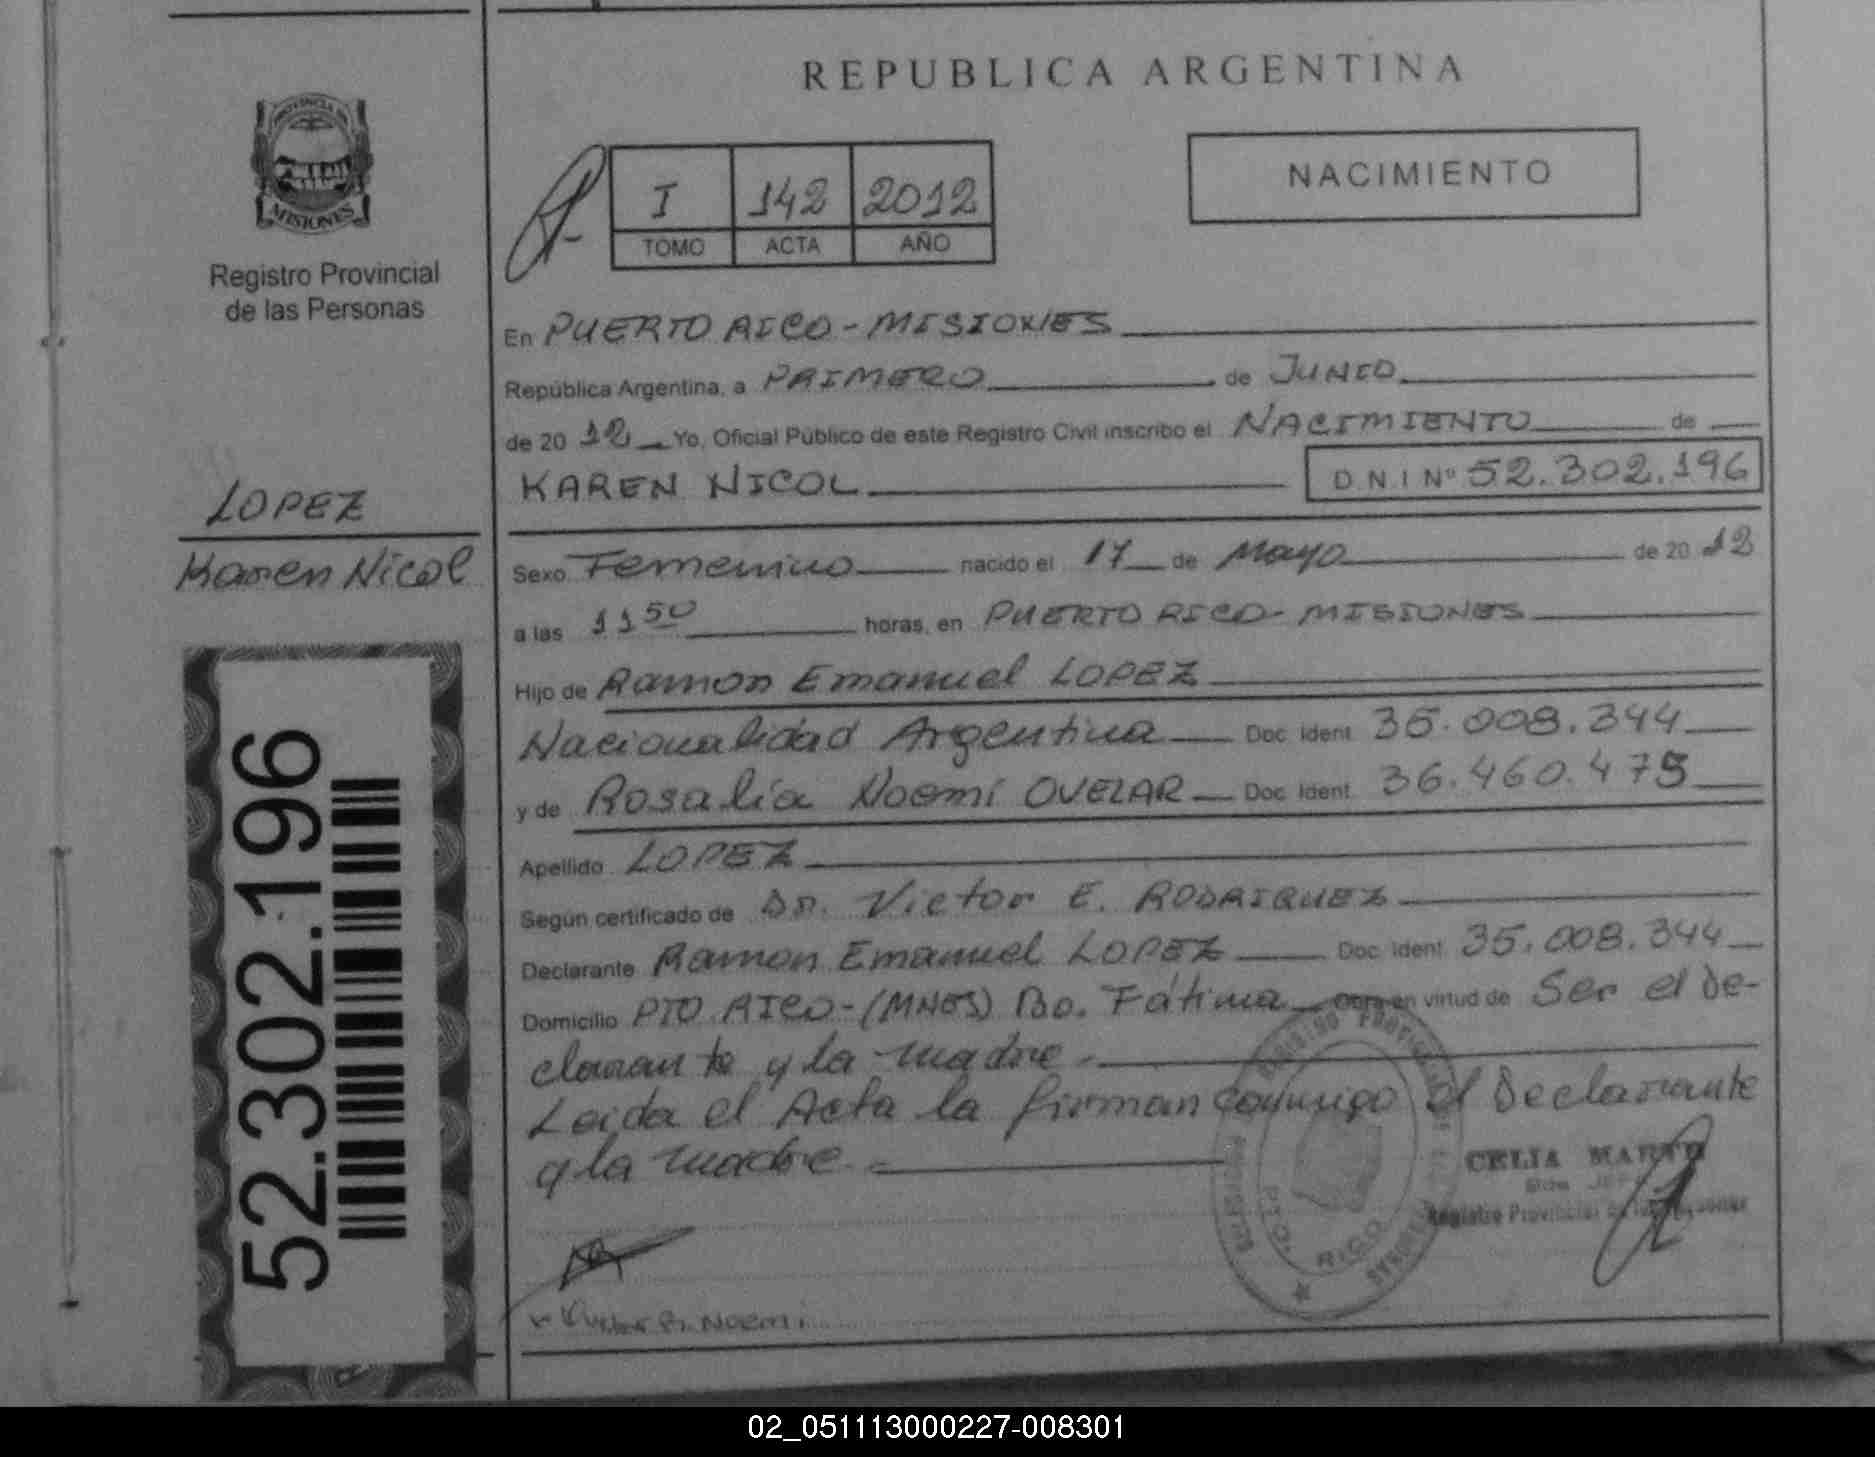 REPUBLICA ARGENTINA
PROVINCIA DE
MISIONES
Registro Provincial
de las Personas
I 142 2012
TOMO ACTA AÑO
NACIMIENTO
En PUERTO RICO - MISIONES
República Argentina, a PRIMERO de JUNIO
de 20 12 Yo, Oficial Público de este Registro Civil inscribo el NACIMIENTO de
KAREN NICOL D.N.I Nº 52.302.196
LOPEZ
Karen Nicol
Sexo Femenino nacido el 17 de Mayo de 20 12
a las 11 50 horas, en PUERTO RICO - MISIONES
Hijo de Ramon Emanuel LOPEZ
Nacionalidad Argentina Doc. Ident. 35.008.344
y de Rosalia Noemi OVELAR Doc. Ident. 36.460.475
Apellido LOPEZ
Según certificado de Dr. Victor E. RODRIQUEZ
Declarante Ramon Emanuel LOPEZ Doc. Ident. 35.008.344
Domicilio PTO RICO - (MNES) Bo. Fátima Obra en virtud de Ser el De-
clarante y la madre.
Leida el Acta la firman conmigo el Declarante
y la madre.
52.302.196
CELIA
Registro Provincial de las Personas
PTO. RICO
Noemi
02_051113000227-008301